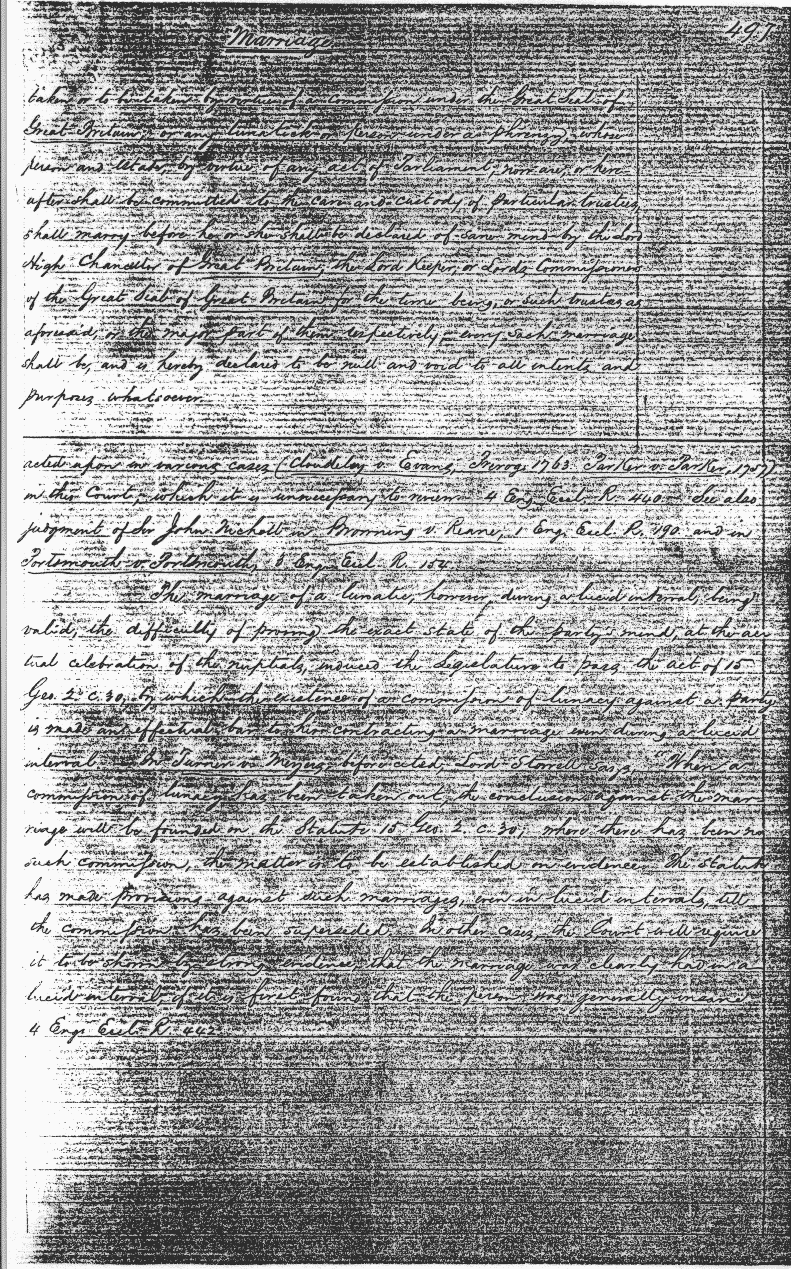 Marriage
taken or to be taken by virtue of a commission under the Great Seal of
Great Britain, or any lunatick or person under a phrenzy, whose
person and estate, by virtue of any act of Parliament, now are, or here
after shall be committed to the care and custody of particular trustees,
shall marry before he or she shall be declared of sane mind by the Lord
High Chancellor of Great Britain, the Lord Keeper, or Lords Commissioners
of the Great Seal of Great Britain for the time being, or such trustees as
aforesaid, or the major part of them respectively, every such marriage
shall be, and is hereby declared to be null and void to all intents and
purposes whatsoever.
acted upon in various cases (Cloudesley v. Evans, Prerog. 1763. Parker v. Parker, 1757)
in this Court, which it is unnecessary to review. 4 Eng. Eccl. R. 440. See also
judgment of Sir John Nicholl in Browning v. Reane, 1 Eng. Eccl. R. 190 and in
Portsmouth v. Portsmouth, Eng. Eccl. R. 154
The marriage of a lunatic, however, during a lucid interval, being
valid, the difficulty of proving the exact state of the party's mind, at the ac
tual celebration of the nuptials, induced the Legislature to pass the act of 15
Geo. 2. c. 30, by which the existence of a commission of lunacy against a party
is made an effectual bar to his contracting a marriage even during a lucid
interval. In Turner v. Meyers, before cited, Lord Stowell says, "When a
commission of lunacy has been taken out, the conclusion against the mar
riage will be founded on the Statute 15 Geo. 2. c. 30; where there has been no
such commission, the matter is to be established on evidence. The statute
has made provisions against such marriages, even in lucid intervals, till
the commission has been superseded. In other cases, the Court will require
it to be shown by strong evidence, that the marriage was clearly had in a
lucid interval, if it is first found that the person was generally insane.
4 Eng. Eccl. R. 442